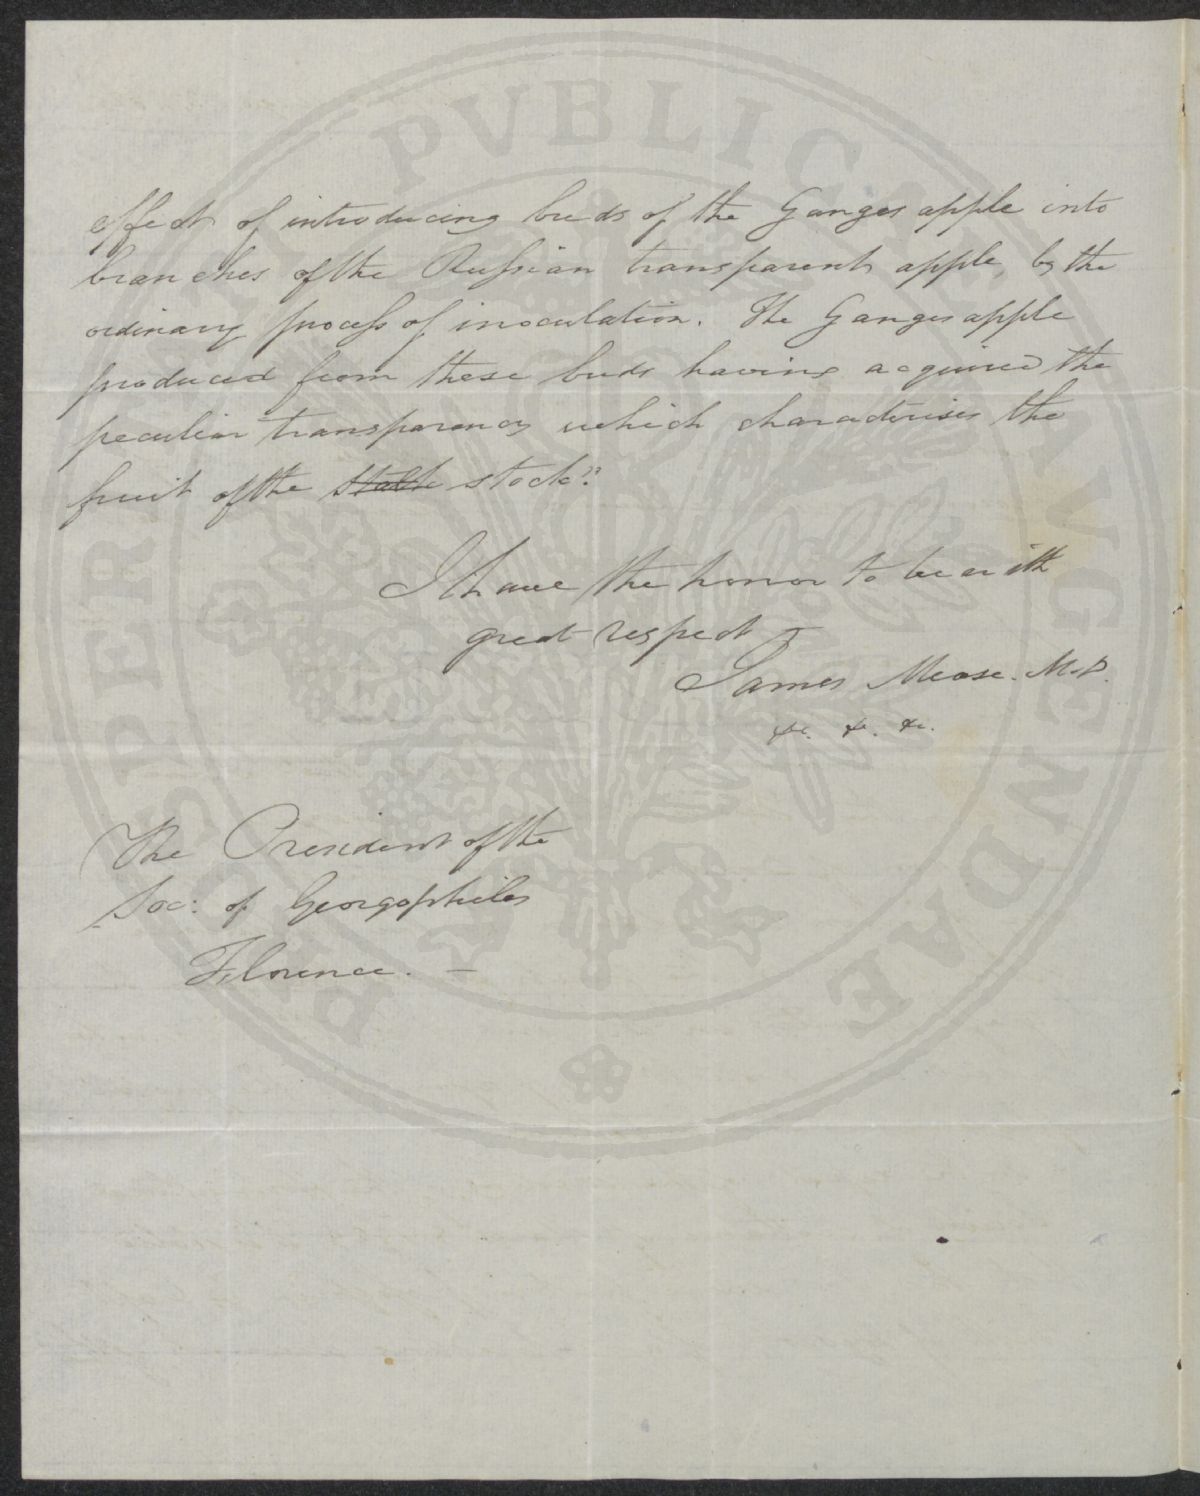 effect of introducing buds of the Ganges apple into
branches of the Russian transparent apple, by the
ordinary process of inoculation. The Ganges apple
produced from these buds having acquired the
peculiar transparency which characterises the
fruit of the stalk stock."
I have the honor to be with
great respect –
James Mease. M.D.
&c. &c. &c.
The President of the
Soc: of Georgophiles
Florence. –
PROSPERITATI PVBLICAE AVGENDAE